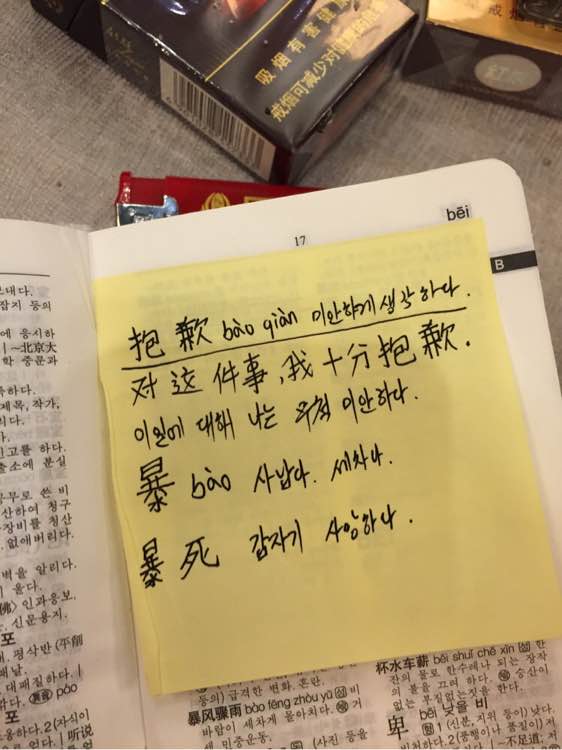 吸烟有害健康
戒烟可减少对健康的危害
17
bēi
B
抱歉 bào qiàn 미안하게 생각하다.
对这件事,我十分抱歉.
이일에 대해 나는 무척 미안하다.
暴 bào 사납다. 세차다.
暴死 갑자기 사망하다.
보내다.
잡지 등의
에 응시하
~北京大
학 중문과
하다.
제목, 작가,
리다.
고를 하다.
출소에 분실
무로 쓴 비
산하여 청구
장비를 청산
없애버리다.
벽을 알리다.
울다.
인과응보.
신문용지.
포
평삭반 (平削
배남.
대패질하다.
포
동하다.2(자식이
다. | 听说
급격한 변화. 혼란.
暴风骤雨 bào fēng zhòu yǔ 성 비
바람이 세차게 몰아치다. 거
센 민중운동.
杯水车薪 bēi shuǐ chē xīn 성 한
잔의 물로 한수레나 되는 장작
의 불을 끄려 하다. 승산이
없는 부질없는짓을 한다.
卑 bēi 낮을 비
형 1(신분, 지위 등이) 낮다.